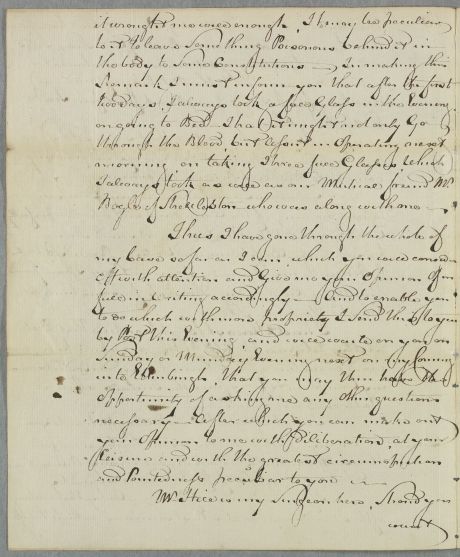 it wrought me weel enough, It may be peculiar
to it to leave something Poisonous behind it in
the body to some Constitutions — In making this
Remark I must inform you that after the first
two days I always took a fine Glass in the Evening
on going to Bed that it might not only Go
through the Blood but assist in operating next
morning on taking three fine Glasses which
I always took as well as our Mutual friend Mr
Bogle of who was along with me —
Thus I have gone through the whole of
my Case so far as I can, which you will consider
off with attention and Give me your Opinion
full in writing accordingly — And to enable you
to do which with more Propriety I send this to you
by Post this Evening and will wait on you on
Sunday or Munday Evening next on my Coming
into Edinburgh, that you may then have the
opportunity of asking me any other questions
necessary — After which you can make out
your Opinion to me with deliberation, at your
Leisure and with the greatest circumspection
and pointedness peculiar to you —
Mr is my Surgeon here, Should you